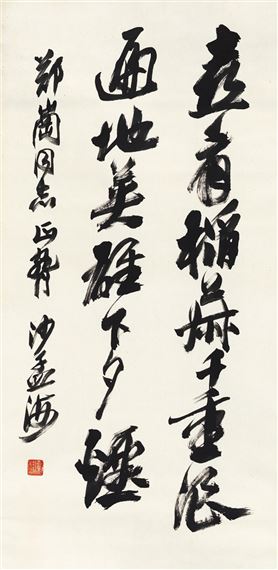 喜看稻菽千重浪
遍地英雄下夕煙
鄭崗同志正 沙孟海